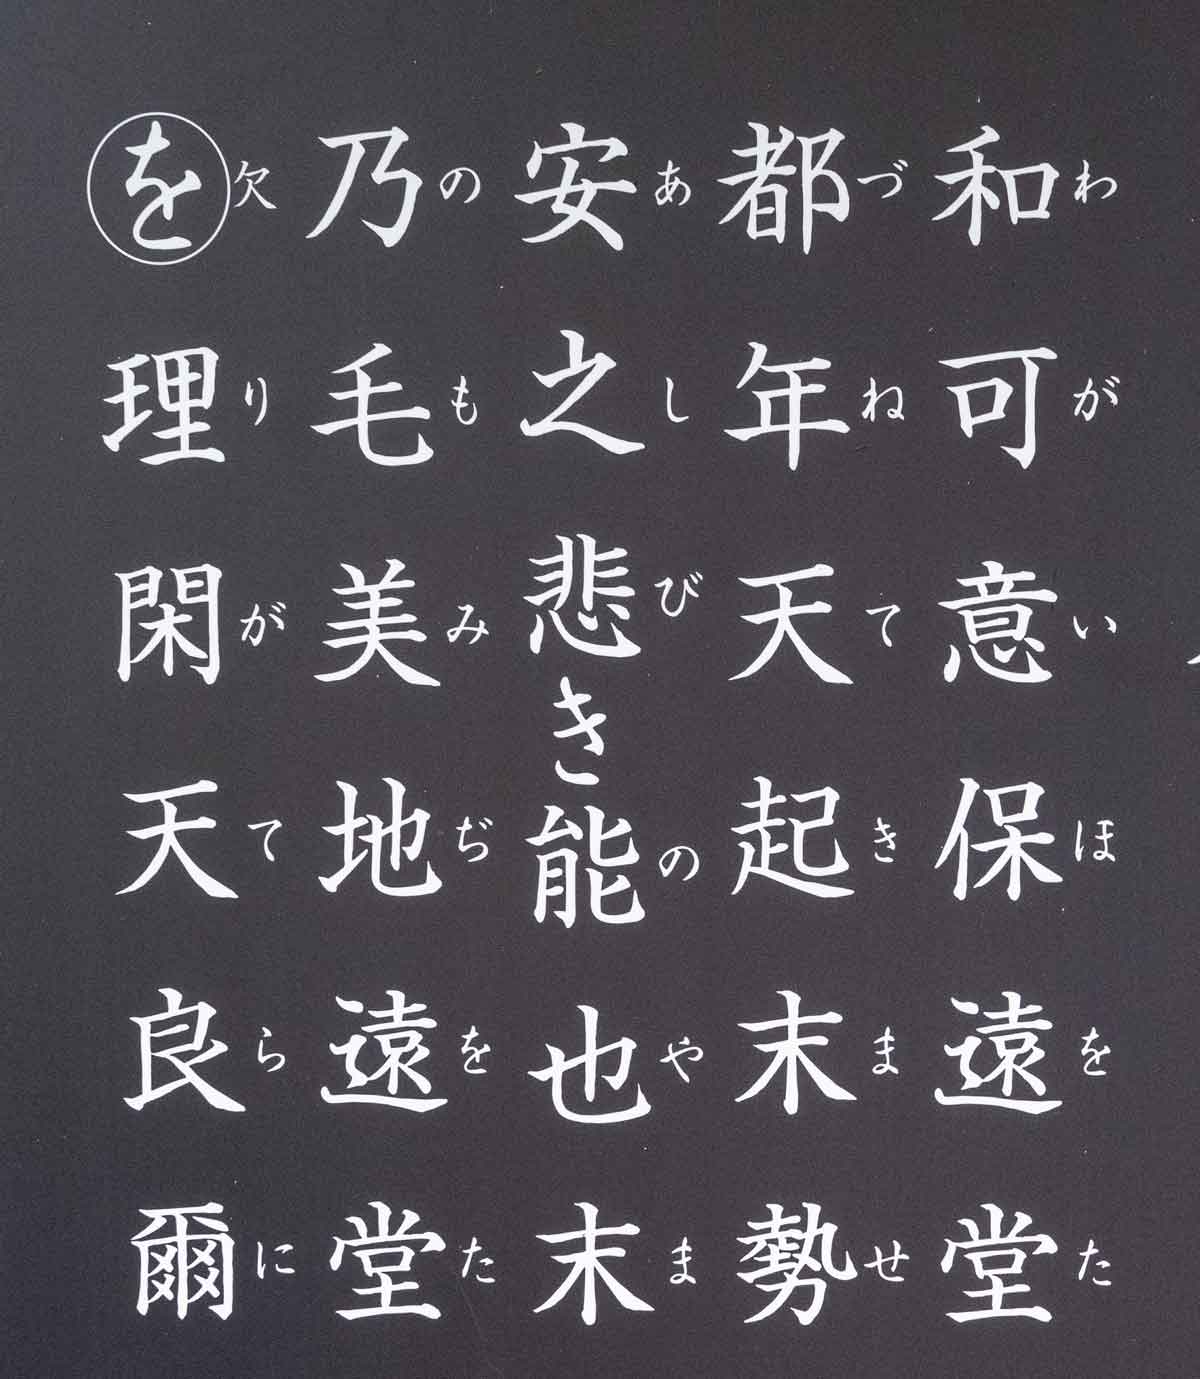 和可意保遠堂
わがいほをた
都年天起末勢
づねてきませ
安之悲き能也末
あしびのやま
乃毛美地遠堂
のもみぢをた
を理閑天良爾
欠りがてらに